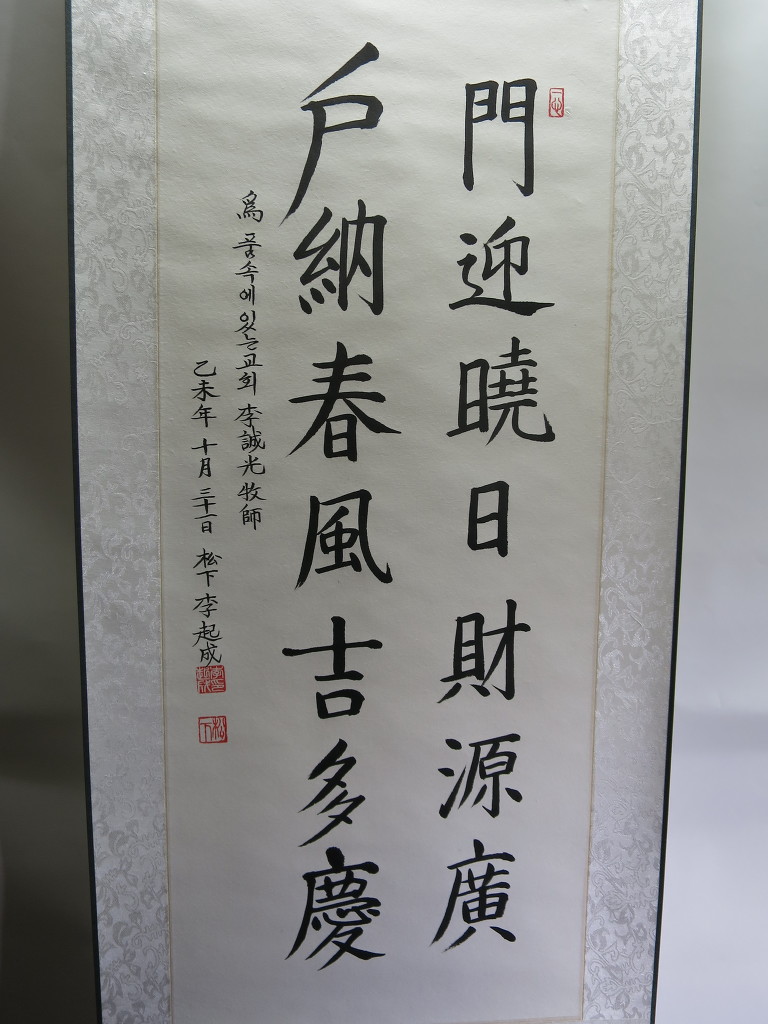 門迎曉日財源廣
戶納春風吉多慶
爲 품속에있는교회 李誠光 牧師
乙未年 十月 三十一日 松下 李起成
松下